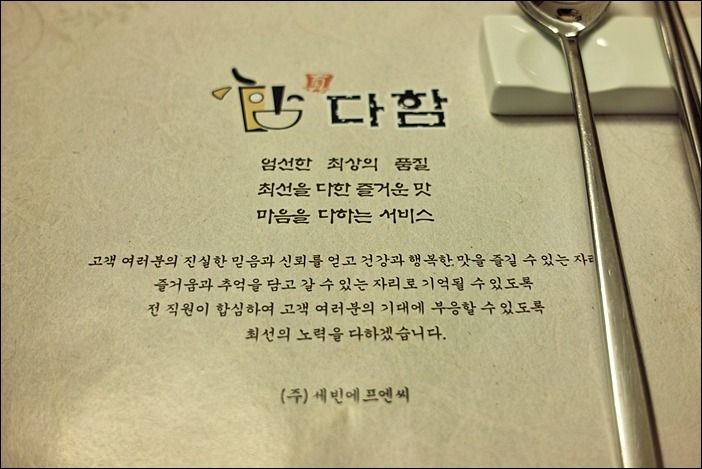 다함
엄선한 최상의 품질
최선을 다한 즐거운 맛
마음을 다하는 서비스
고객 여러분의 진실한 믿음과 신뢰를 얻고 건강과 행복한 맛을 즐길 수 있는
즐거움과 추억을 담고 갈 수 있는 자리로 기억될 수 있도록
전 직원이 합심하여 고객 여러분의 기대에 부응할 수 있도록
최선의 노력을 다하겠습니다.
(주) 세빈에프엔씨